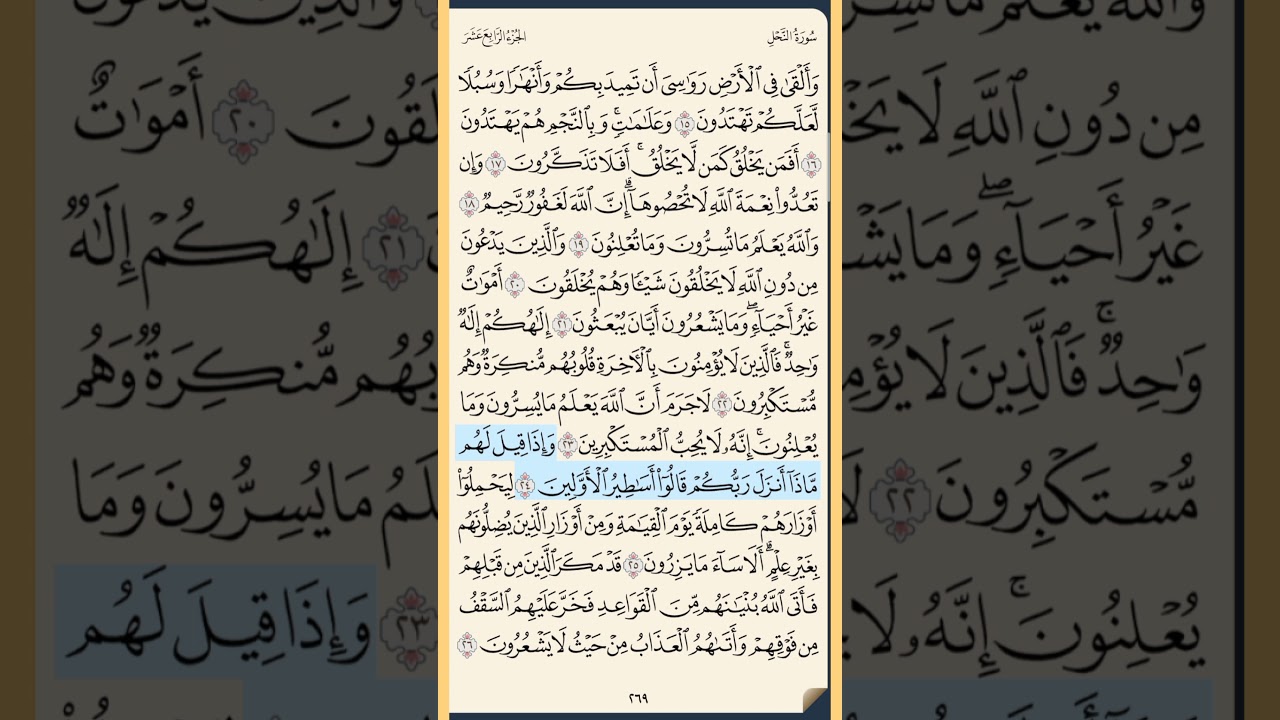 سُورَةُ النَّحْلِ
الجُزْءُ الرَّابِعَ عَشَرَ
وَأَلْقَىٰ فِى ٱلْأَرْضِ رَوَٰسِىَ أَن تَمِيدَ بِكُمْ وَأَنْهَٰرًا وَسُبُلًا
لَّعَلَّكُمْ تَهْتَدُونَ ١٥ وَعَلَٰمَٰتٍۚ وَبِٱلنَّجْمِ هُمْ يَهْتَدُونَ
١٦ أَفَمَن يَخْلُقُ كَمَن لَّا يَخْلُقُۚ أَفَلَا تَذَكَّرُونَ ١٧ وَإِن
تَعُدُّوا۟ نِعْمَةَ ٱللَّهِ لَا تُحْصُوهَآۗ إِنَّ ٱللَّهَ لَغَفُورٌ رَّحِيمٌ ١٨
وَٱللَّهُ يَعْلَمُ مَا تُسِرُّونَ وَمَا تُعْلِنُونَ ١٩ وَٱلَّذِينَ يَدْعُونَ
مِن دُونِ ٱللَّهِ لَا يَخْلُقُونَ شَيْـًٔا وَهُمْ يُخْلَقُونَ ٢٠ أَمْوَٰتٌ
غَيْرُ أَحْيَآءٍۖ وَمَا يَشْعُرُونَ أَيَّانَ يُبْعَثُونَ ٢١ إِلَٰهُكُمْ إِلَٰهٌ
وَٰحِدٌۚ فَٱلَّذِينَ لَا يُؤْمِنُونَ بِٱلْـَٔاخِرَةِ قُلُوبُهُم مُّنكِرَةٌ وَهُم
مُّسْتَكْبِرُونَ ٢٢ لَا جَرَمَ أَنَّ ٱللَّهَ يَعْلَمُ مَا يُسِرُّونَ وَمَا
يُعْلِنُونَۚ إِنَّهُۥ لَا يُحِبُّ ٱلْمُسْتَكْبِرِينَ ٢٣ وَإِذَا قِيلَ لَهُم
مَّاذَآ أَنزَلَ رَبُّكُمْ قَالُوٓا۟ أَسَٰطِيرُ ٱلْأَوَّلِينَ ٢٤ لِيَحْمِلُوٓا۟
أَوْزَارَهُمْ كَامِلَةً يَوْمَ ٱلْقِيَٰمَةِ وَمِنْ أَوْزَارِ ٱلَّذِينَ يُضِلُّونَهُم
بِغَيْرِ عِلْمٍۗ أَلَا سَآءَ مَا يَزِرُونَ ٢٥ قَدْ مَكَرَ ٱلَّذِينَ مِن قَبْلِهِمْ
فَأَتَى ٱللَّهُ بُنْيَٰنَهُم مِّنَ ٱلْقَوَاعِدِ فَخَرَّ عَلَيْهِمُ ٱلسَّقْفُ
مِن فَوْقِهِمْ وَأَتَىٰهُمُ ٱلْعَذَابُ مِنْ حَيْثُ لَا يَشْعُرُونَ ٢٦
٢٦٩